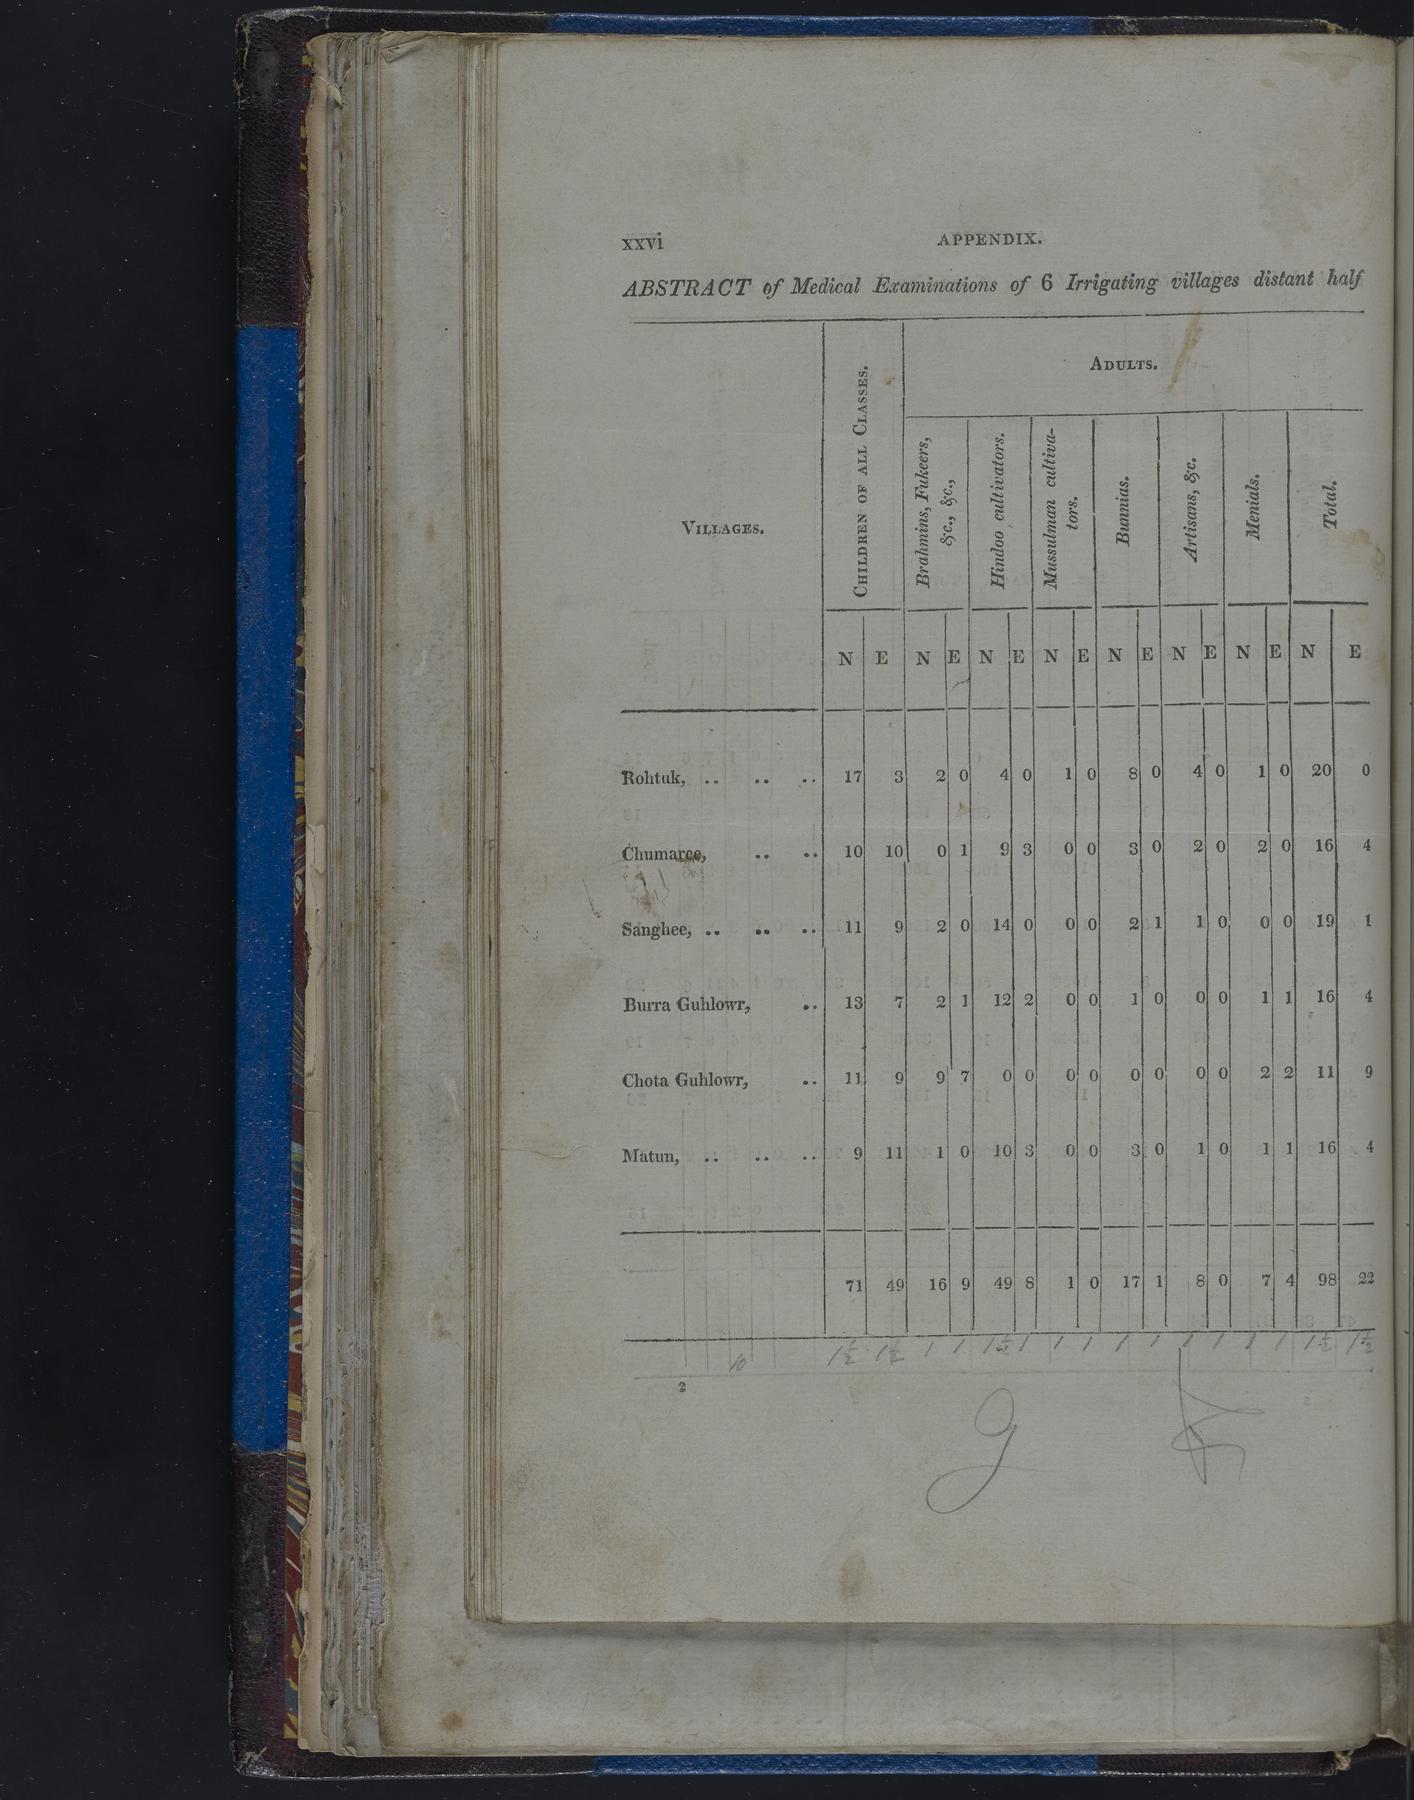 xxvi APPENDIX.
ABSTRACT of Medical Examinations of 6 Irrigating villages distant half
VILLAGES. CHILDREN OF ALL CLASSES. ADULTS.
Brahmins, Fukeers, &c., &c., Hindoo cultivators. Mussulman cultiva-tors. Bunnias. Artisans, &c. Menials. Total.
N E N E N E N E N E N E N E N E
Rohtuk, .. .. .. 17 3 2 0 4 0 1 0 8 0 4 0 1 0 20 0
Chumaree, .. .. 10 10 0 1 9 3 0 0 3 0 2 0 2 0 16 4
Sanghee, .. .. .. 11 9 2 0 14 0 0 0 2 1 1 0 0 0 19 1
Burra Guhlowr, .. 13 7 2 1 12 2 0 0 1 0 0 0 1 1 16 4
Chota Guhlowr, .. 11 9 9 7 0 0 0 0 0 0 0 0 2 2 11 9
Matun, .. .. .. 9 11 1 0 10 3 0 0 3 0 1 0 1 1 16 4
71 49 16 9 49 8 1 0 17 1 8 0 7 4 98 22
10 1½ 1½ 1 1 1½ 1 1 1 1 1 1 1 1 1 1½ 1½
2